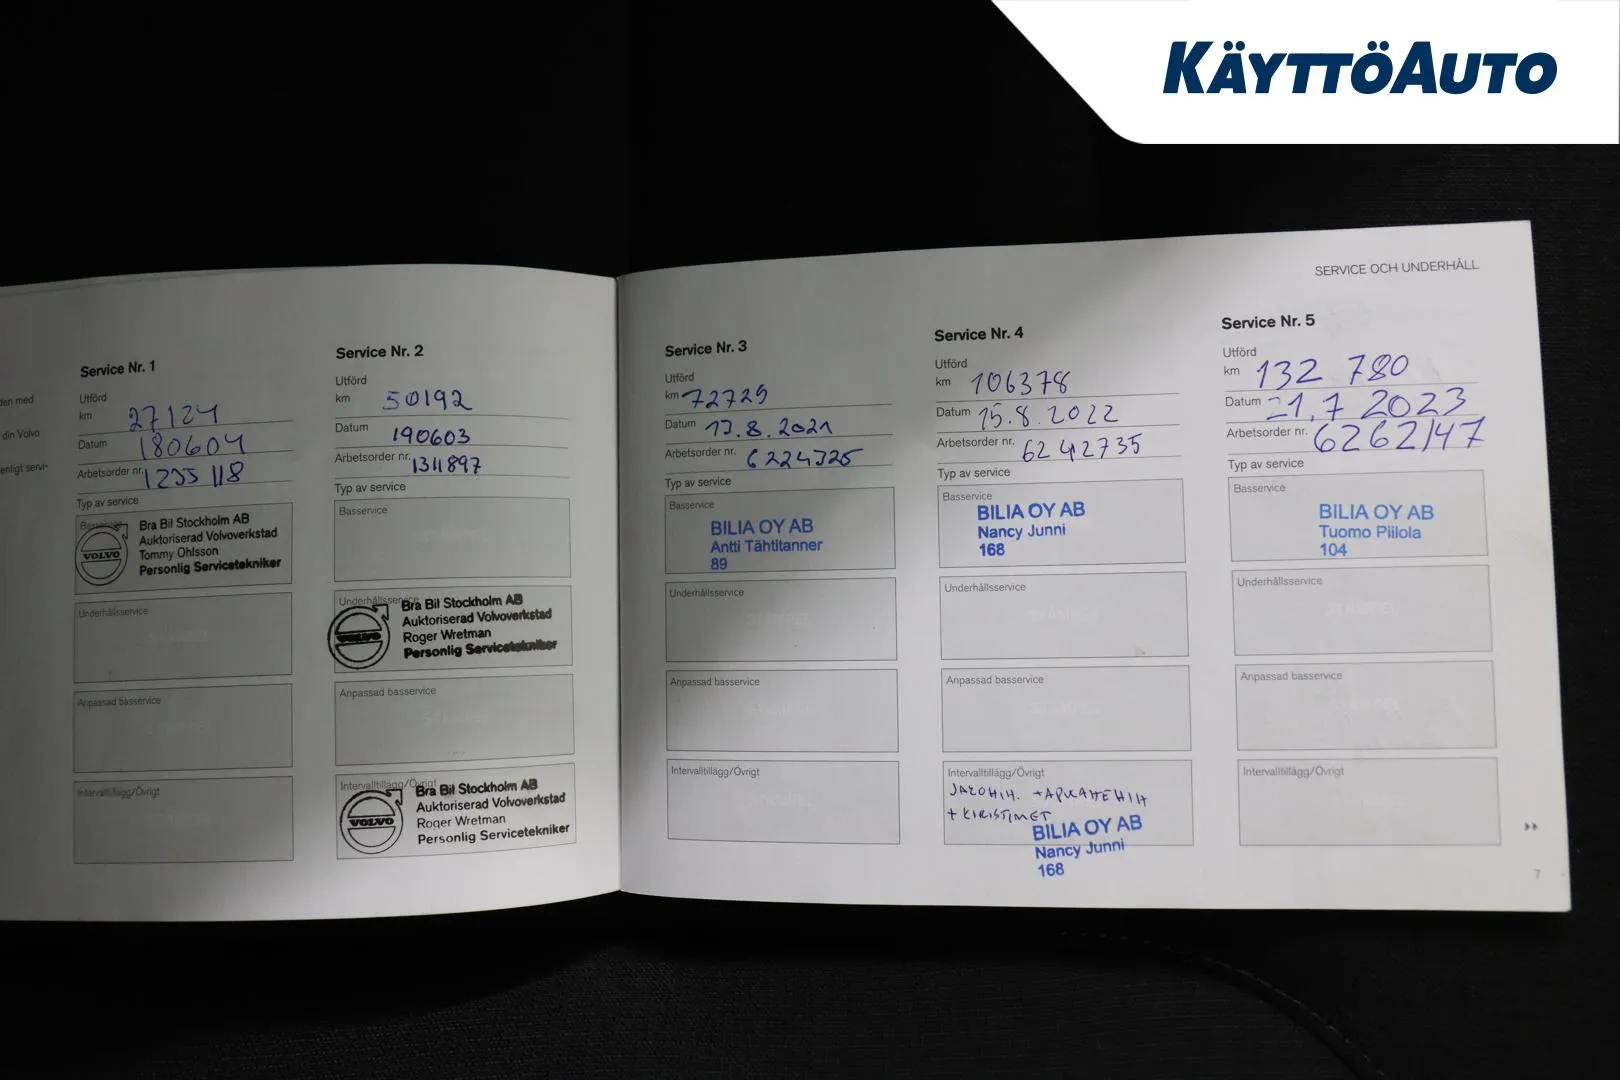 KÄYTTÖAUTO
SERVICE OCH UNDERHÅLL
den med
din Volvo
enligt servi-
Service Nr. 1
Utförd
km 27124
Datum 180604
Arbetsorder nr. 1255118
Typ av service
Basservice
VOLVO
Bra Bil Stockholm AB
Auktoriserad Volvoverkstad
Tommy Ohlsson
Personlig Servicetekniker
Underhållsservice
Anpassad basservice
Intervalltillägg/Övrigt
Service Nr. 2
Utförd
km 50192
Datum 190603
Arbetsorder nr. 1311897
Typ av service
Basservice
Underhållsservice
VOLVO
Bra Bil Stockholm AB
Auktoriserad Volvoverkstad
Roger Wretman
Personlig Servicetekniker
Anpassad basservice
Intervalltillägg/Övrigt
VOLVO
Bra Bil Stockholm AB
Auktoriserad Volvoverkstad
Roger Wretman
Personlig Servicetekniker
Service Nr. 3
Utförd
km 72725
Datum 17.8.2021
Arbetsorder nr. 6224325
Typ av service
Basservice
BILIA OY AB
Antti Tähtitanner
89
Underhållsservice
Anpassad basservice
Intervalltillägg/Övrigt
Service Nr. 4
Utförd
km 106378
Datum 15.8.2022
Arbetsorder nr. 6242735
Typ av service
Basservice
BILIA OY AB
Nancy Junni
168
Underhållsservice
Anpassad basservice
Intervalltillägg/Övrigt
BILIA OY AB
Nancy Junni
168
Service Nr. 5
Utförd
km 132 780
Datum 21.7 2023
Arbetsorder nr. 6262147
Typ av service
Basservice
BILIA OY AB
Tuomo Piilola
104
Underhållsservice
Anpassad basservice
Intervalltillägg/Övrigt
7